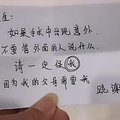 生:
如果手术中出现意外
不要管外面的人说什么
请一定保我
因为我的父母需要我
跪谢